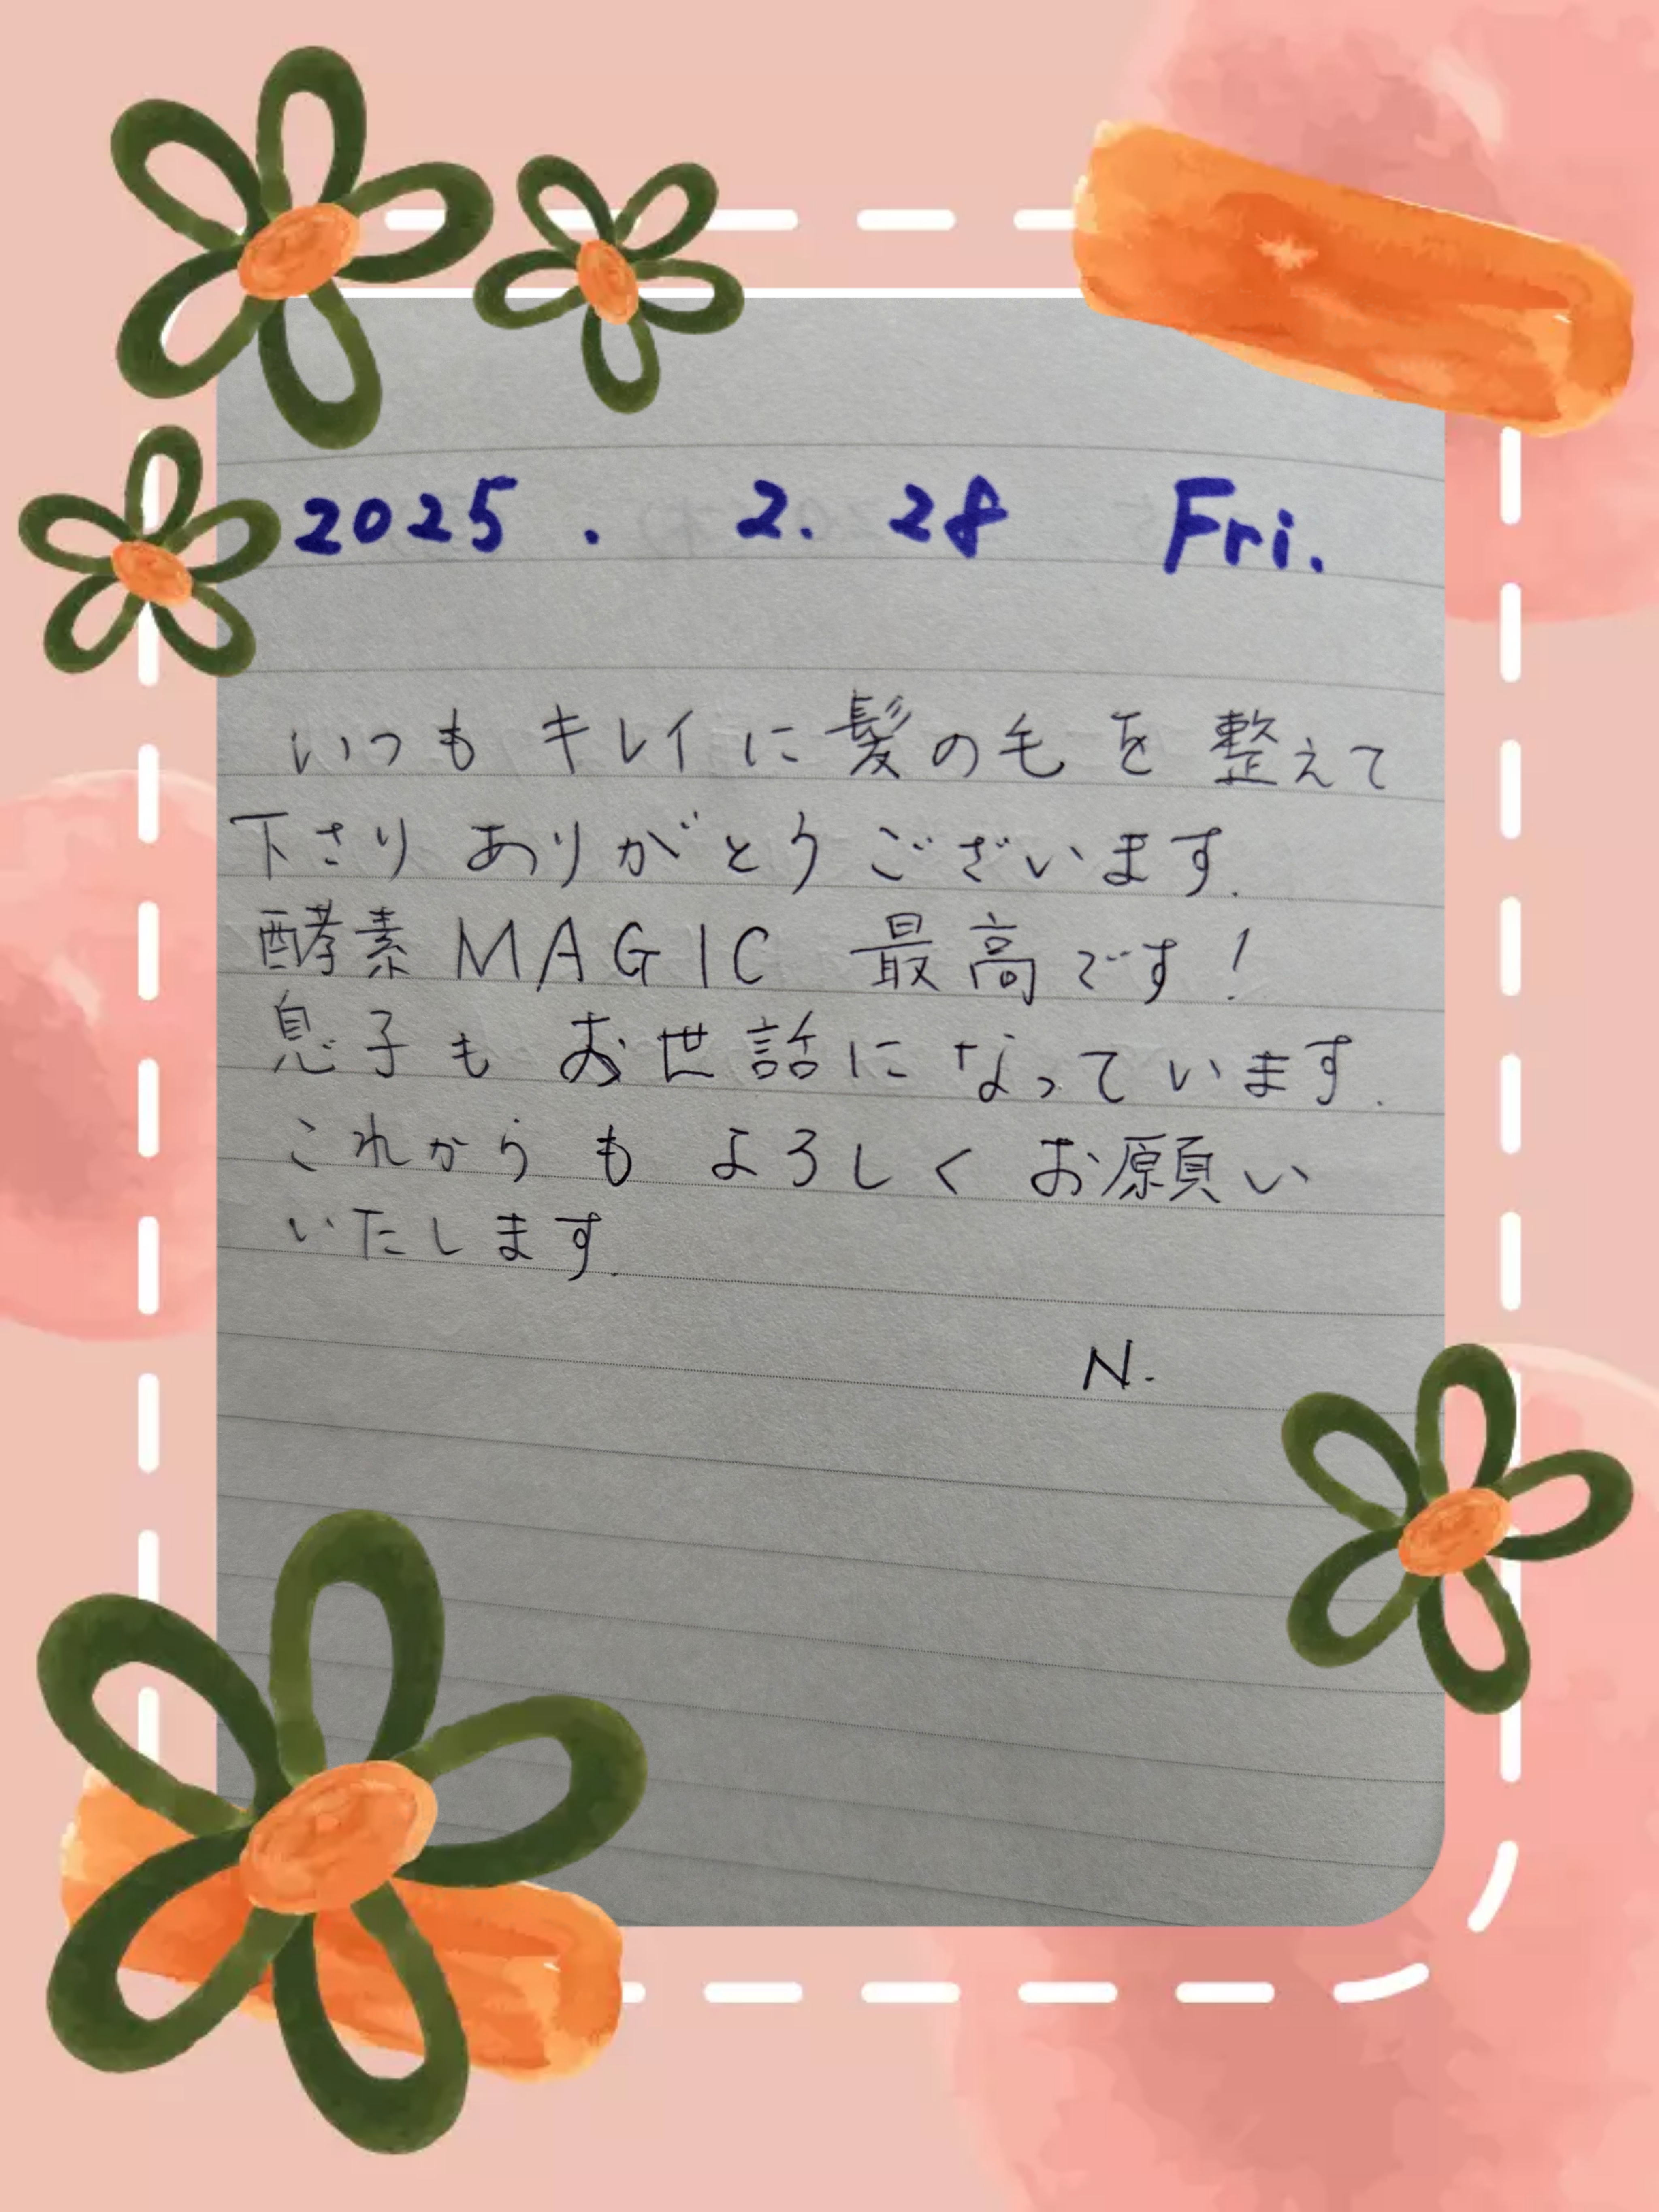 2025. 2. 28 Fri.
いつもキレイに髪の毛を整えて
下さりありがとうございます.
酵素 MAGIC 最高です!
息子もお世話になっています.
これからもよろしくお願い
いたします.
N.